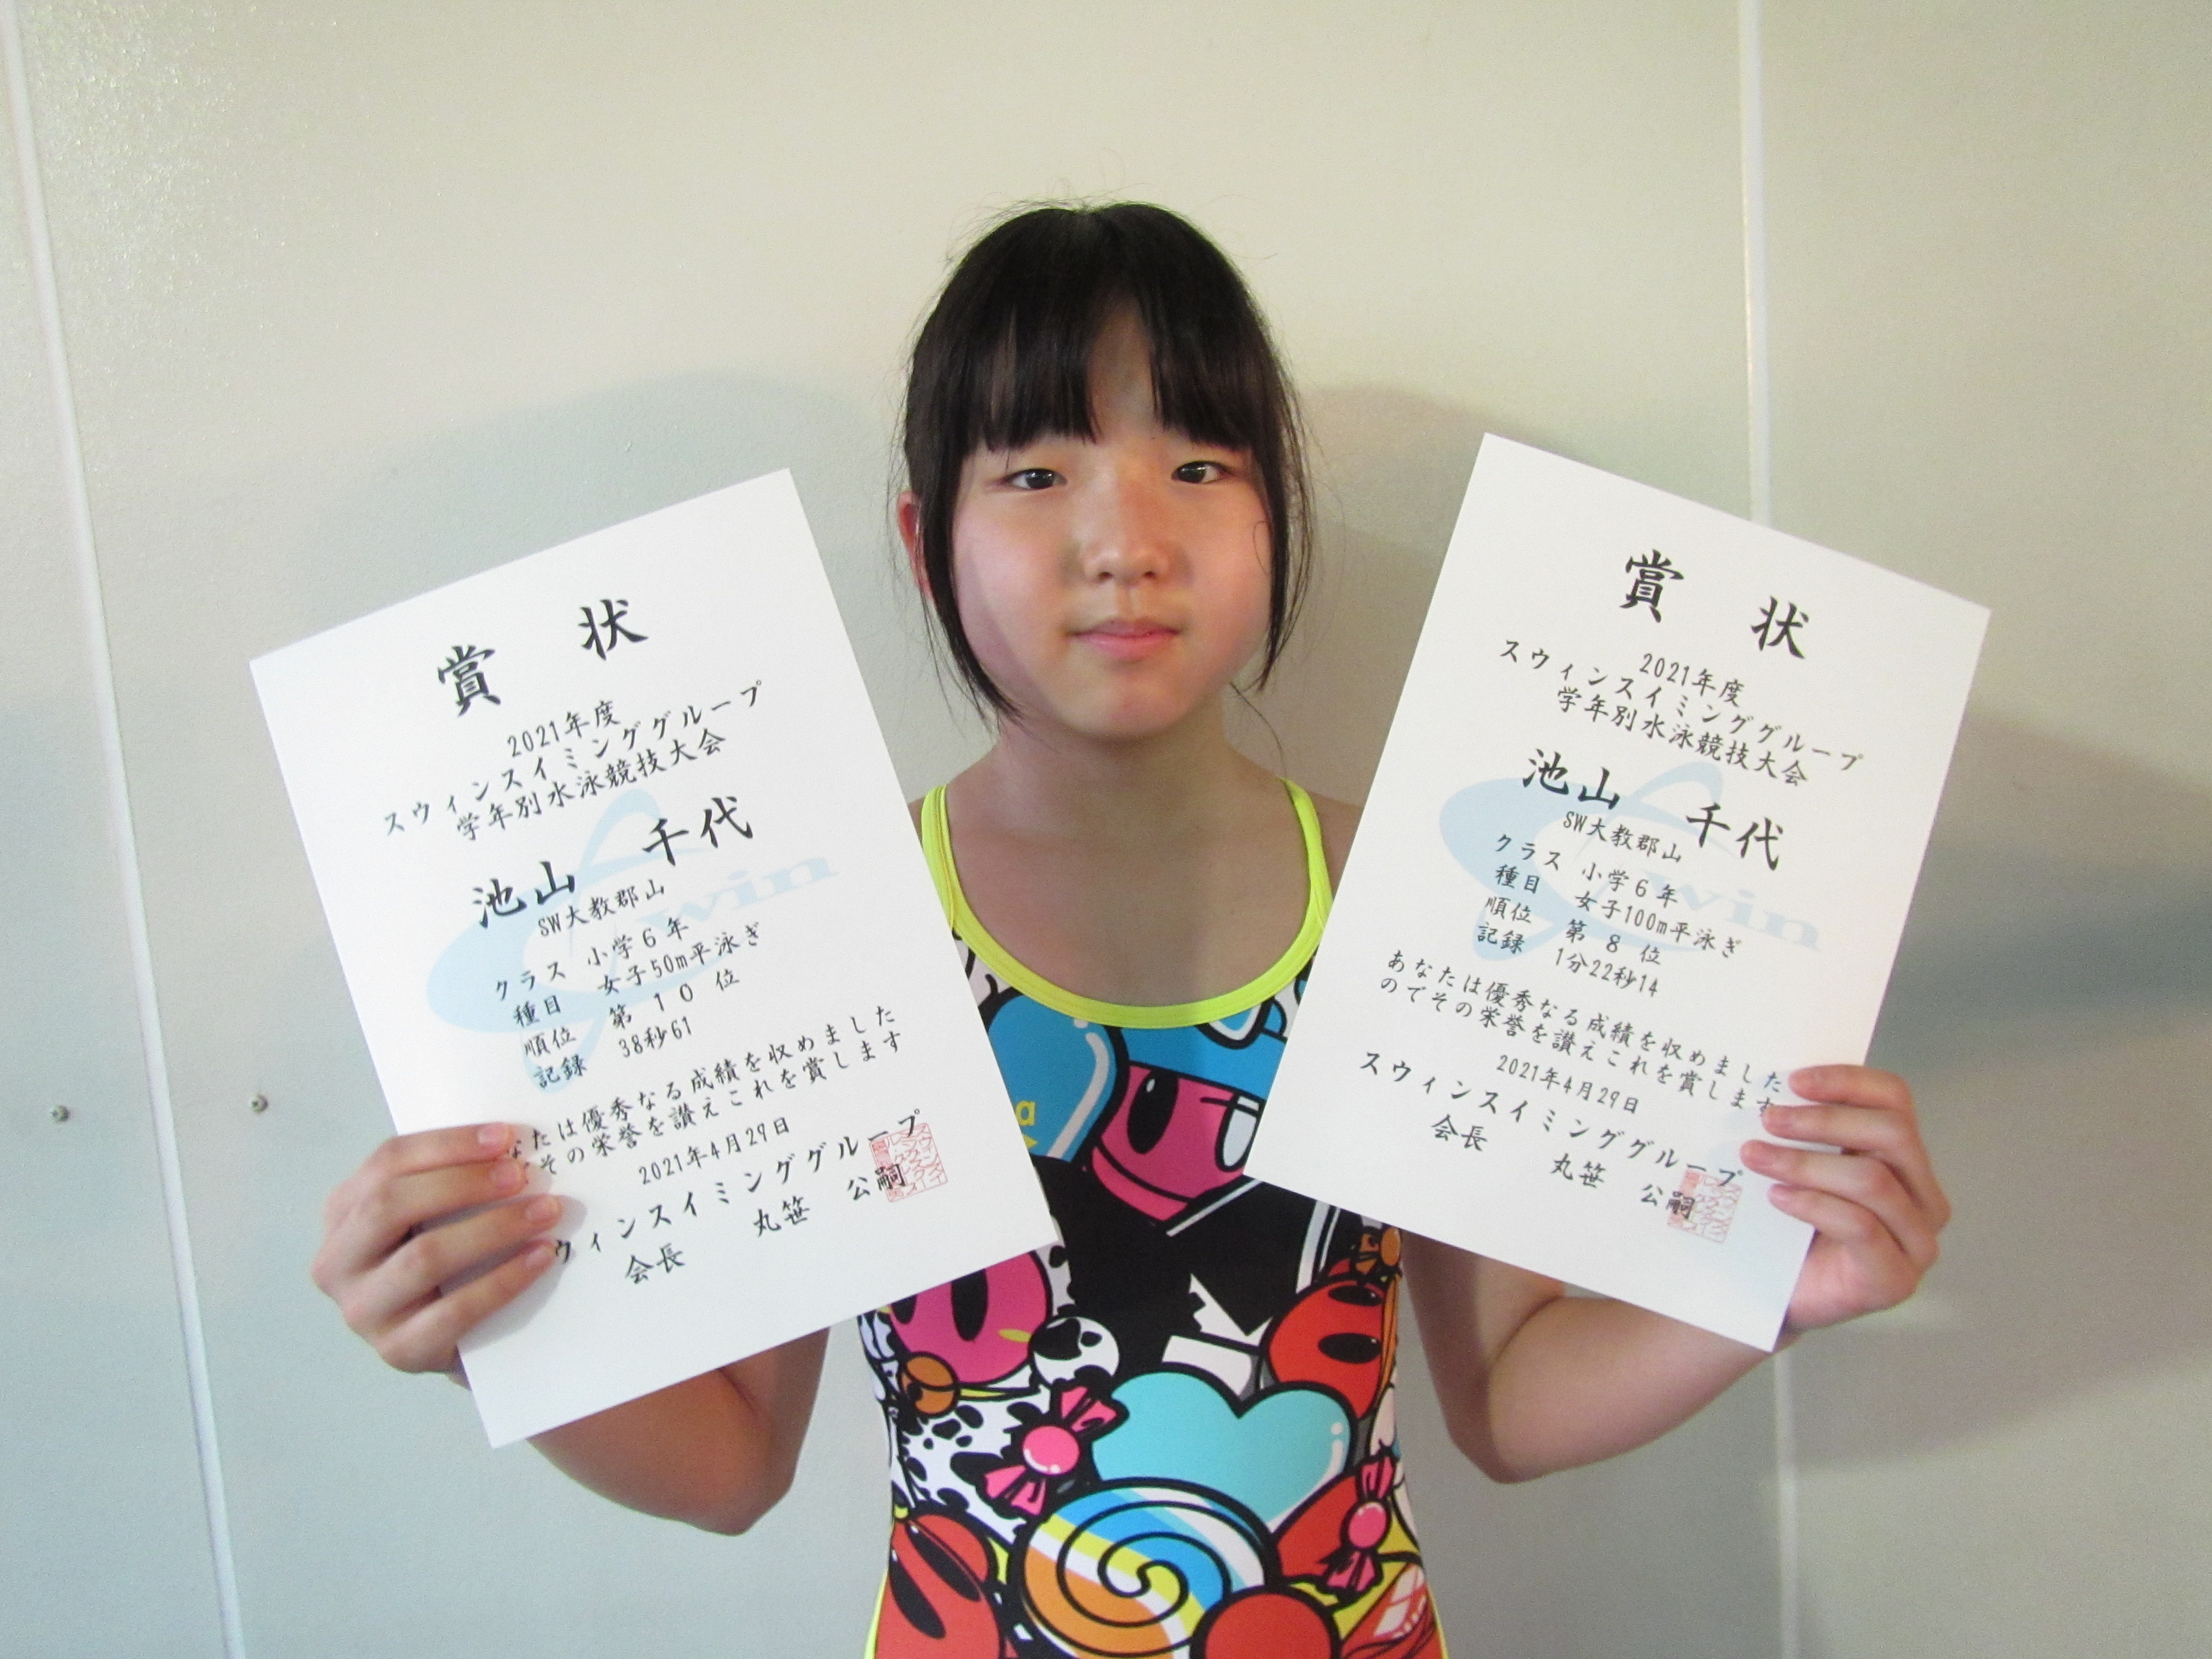 賞 状
2021年度
スウィンスイミンググループ
学年別水泳競技大会
池山 千代
SW大教郡山
クラス 小学6年
種目 女子50m平泳ぎ
順位 第 10 位
記録 38秒61
なたは優秀なる成績を収めました
でその栄誉を讃えこれを賞します
2021年4月29日
ウィンスイミンググループ
会長 丸笹 公嗣
win
賞 状
2021年度
スウィンスイミンググループ
学年別水泳競技大会
池山 千代
SW大教郡山
クラス 小学6年
種目 女子100m平泳ぎ
順位 第 8 位
記録 1分22秒14
あなたは優秀なる成績を収めました
のでその栄誉を讃えこれを賞します
2021年4月29日
スウィンスイミンググループ
会長 丸笹 公嗣
win